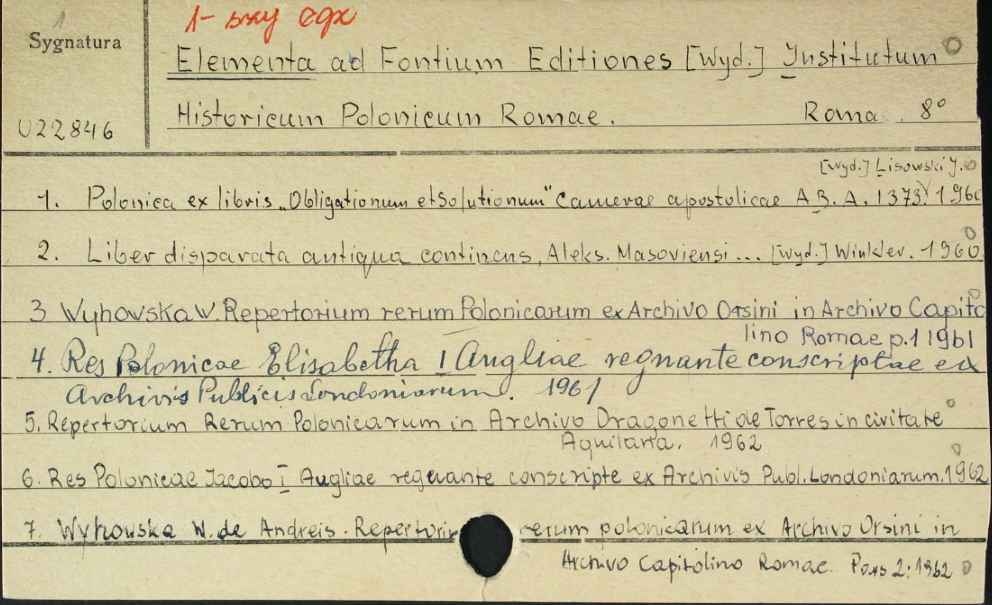 1- szy egz
Sygnatura
Elementa ad Fontium Editiones [Wyd.] Institutum
Historicum Polonicum Romae. Roma. 8°
022846
[wyd.] Lisowski J.
1. Polonica ex libris "Obligationum et Solutionum" Camerae apostolicae A.B.A. 1373. 1960
2. Liber disparata antiqua continens, Aleks. Masoviensi ... [wyd.] Winkler. 1960
3 Wyhowska W. Repertorium rerum Polonicarum ex Archivo Orsini in Archivo Capito
lino Romae p.1 1961
4. Res Polonicae Elisabetha I Angliae regnante conscriptae ex
Archivis Publicis Londoniarum. 1961
5. Repertorium Rerum Polonicarum in Archivo Dragonetti de Torres in civitate
Aquilana. 1962
6. Res Polonicae Jacobo I Angliae regnante conscripte ex Archivis Publ. Londoniarum. 1962
7. Wyhowska W. de Andreis. Repertoriu rerum polonicarum ex Archivo Orsini in
Archivo Capitolino Romae. Pars 2: 1962